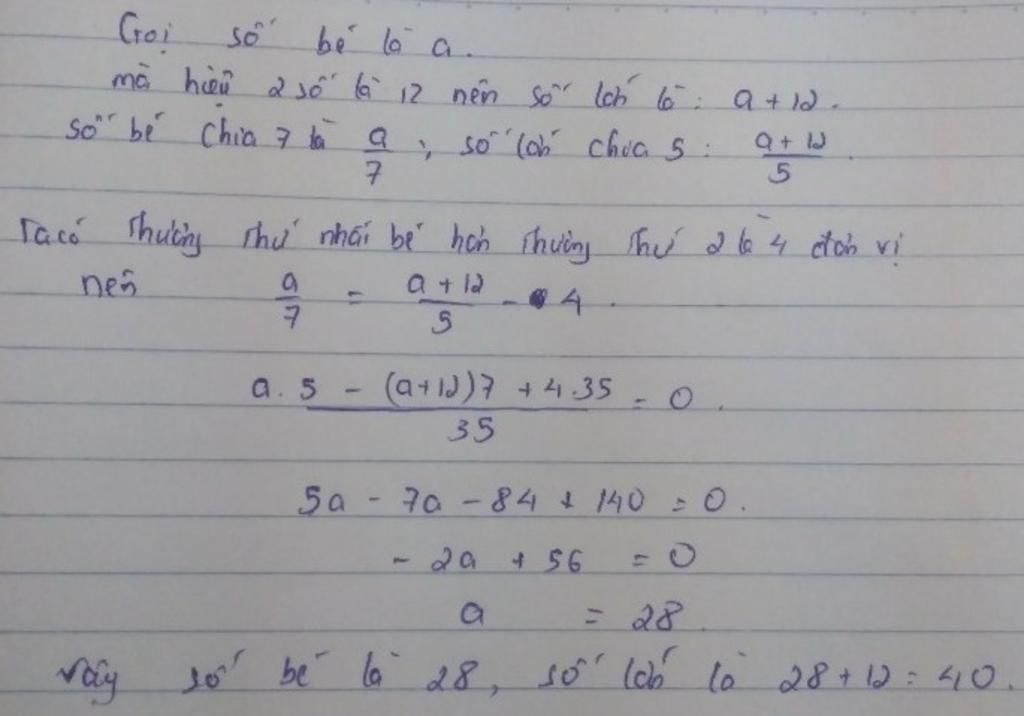 Gọi số bé là a.
mà hiệu 2 số là 12 nên số lớn là: a + 12.
số bé chia 7 là a/7; số lớn chia 5: (a + 12)/5.
Ta có thương thứ nhất bé hơn thương thứ 2 là 4 đơn vị
nên a/7 = (a + 12)/5 - 4.
(a . 5 - (a+12)7 + 4.35)/35 = 0.
5a - 7a - 84 + 140 = 0.
- 2a + 56 = 0
a = 28.
Vậy số bé là 28, số lớn là 28 + 12 = 40.